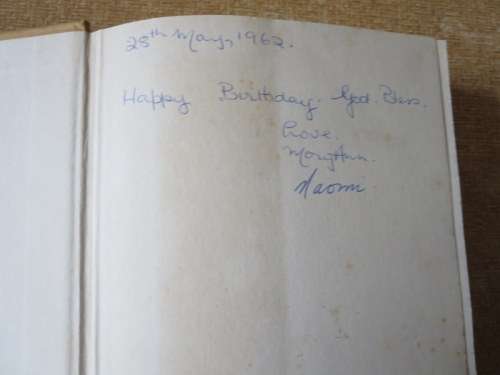 25th May, 1962.
Happy Birthday. God Bless.
Love.
MaryAnn.
Naomi